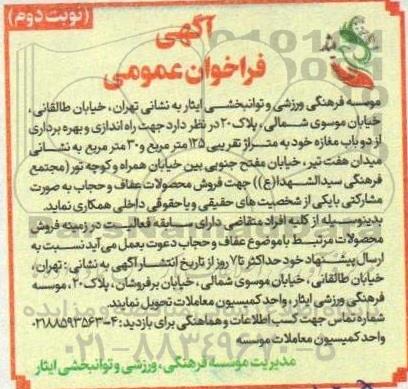 (نوبت دوم)
آگهی
فراخوان عمومی
موسسه فرهنگی ورزشی و توانبخشی ایثار به نشانی تهران، خیابان طالقانی،
خیابان موسوی شمالی، پلاک ۲۰ در نظر دارد جهت راه اندازی و بهره برداری
از دو باب مغازه خود به متراژ تقریبی ۱۲۵ متر مربع و ۳۰ متر مربع به نشانی
میدان هفت تیر، خیابان مفتح جنوبی بین خیابان همراه و کوچه تور (مجتمع
فرهنگی سیدالشهدا(ع)) جهت فروش محصولات عفاف و حجاب به صورت
مشارکتی با یکی از شخصیت های حقیقی و یا حقوقی داخلی همکاری نماید.
بدینوسیله از کلیه افراد متقاضی دارای سابقه فعالیت در زمینه فروش
محصولات مرتبط با موضوع عفاف و حجاب دعوت بعمل می آید نسبت به
ارسال پیشنهاد خود حداکثر تا ۷ روز از تاریخ انتشار آگهی به نشانی: تهران،
خیابان طالقانی، خیابان موسوی شمالی، خیابان برفروشان، پلاک ۲۰، موسسه
فرهنگی ورزشی ایثار، واحد کمیسیون معاملات تحویل نمایند.
شماره تماس جهت کسب اطلاعات و هماهنگی برای بازدید: ۴-۰۲۱۸۸۵۹۳۵۶۳
واحد کمیسیون معاملات موسسه
۰۲۱-۸۸۳۴۹۶۷۰-۵
مدیریت موسسه فرهنگی، ورزشی و توانبخشی ایثار